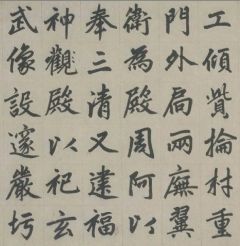 工傾貲掄材重
門外局兩廡翼
衛為殿周阿以
奉三清又建福
神觀殿以祀玄
武像設邃嚴圬